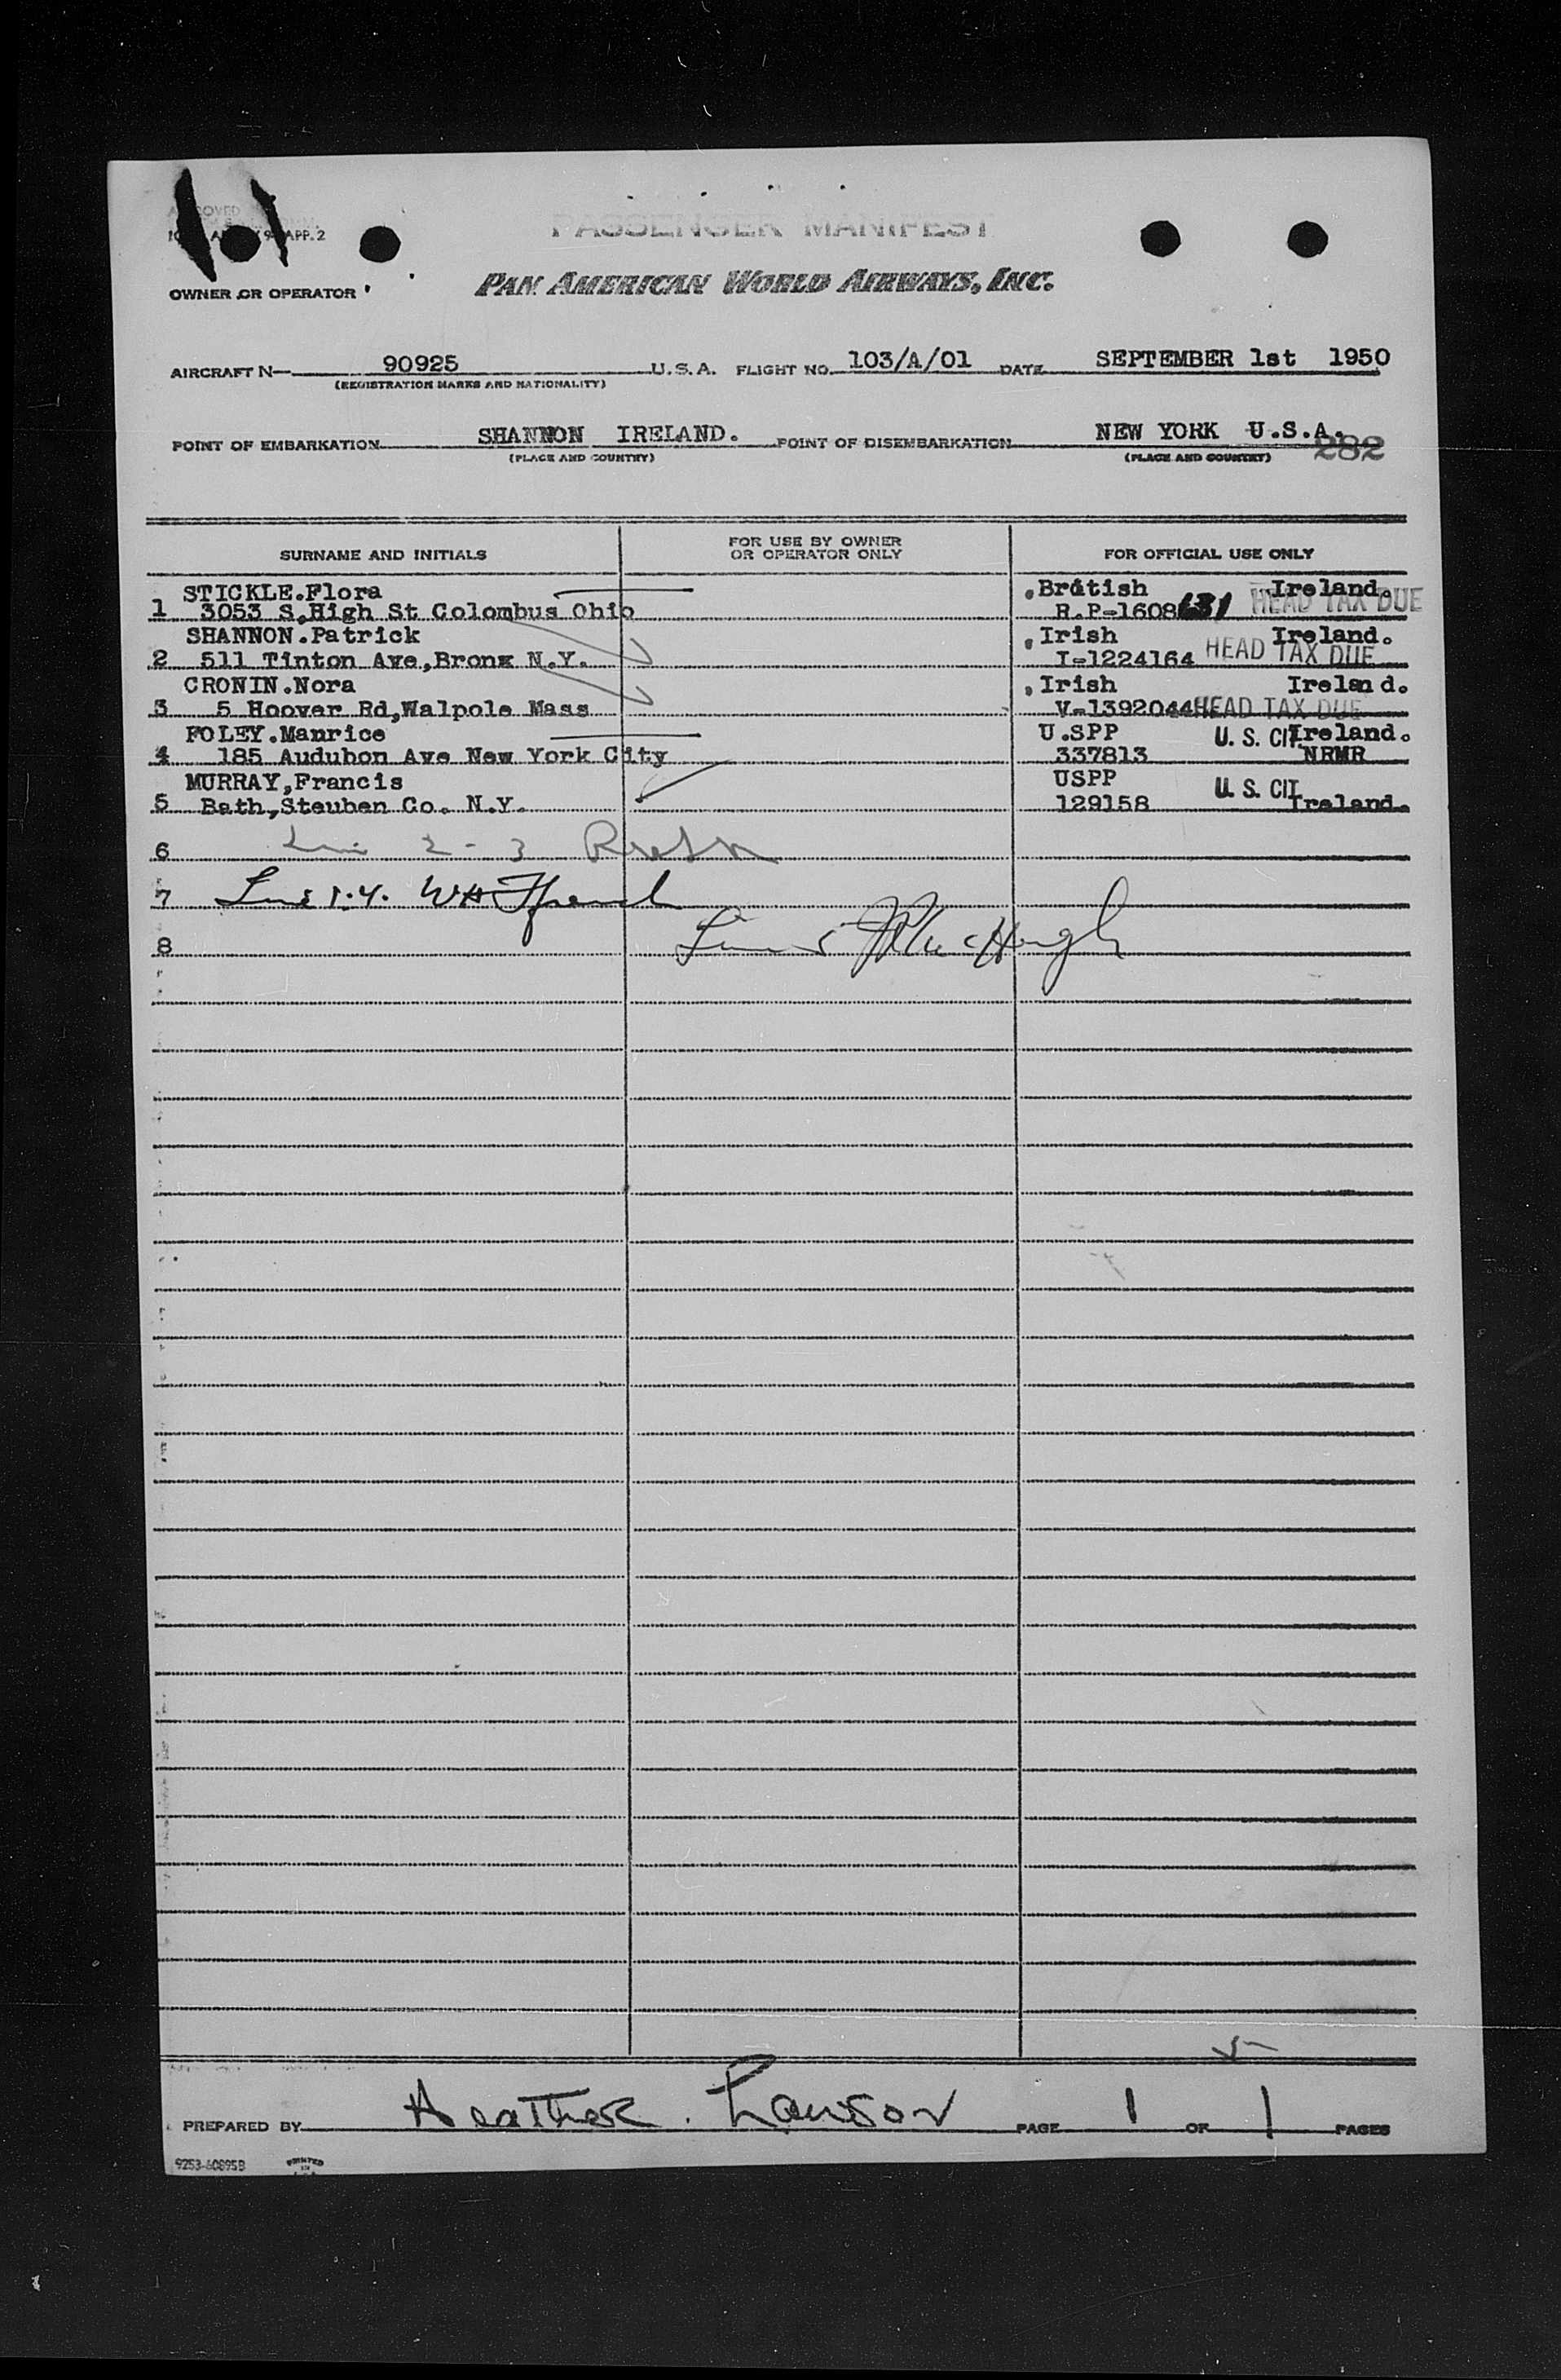 APP. 2
PASSENGER MANIFEST
OWNER OR OPERATOR PAN AMERICAN WORLD AIRWAYS, INC.
AIRCRAFT N— 90925 U.S.A. FLIGHT NO. 103/A/01 DATE SEPTEMBER 1st 1950
(REGISTRATION MARKS AND NATIONALITY)
POINT OF EMBARKATION SHANNON IRELAND. POINT OF DISEMBARKATION NEW YORK U.S.A.
(PLACE AND COUNTRY) (PLACE AND COUNTRY) 282
SURNAME AND INITIALS FOR USE BY OWNER OR OPERATOR ONLY FOR OFFICIAL USE ONLY
STICKLE.Flora British Ireland.
1 3053 S,High St Colombus Ohio R.P-1608631 HEAD TAX DUE
SHANNON.Patrick Irish Ireland.
2 511 Tinton Ave,Bronx N.Y. I-1224164 HEAD TAX DUE
CRONIN.Nora Irish Ireland.
3 5 Hoover Rd,Walpole Mass V-1392044 HEAD TAX DUE
FOLEY.Maurice U.SPP U. S. CIT. Ireland.
4 185 Audubon Ave New York City 337813 NRMR
MURRAY,Francis USPP U. S. CIT.
5 Bath,Steuben Co. N.Y. 129158 Ireland.
6 2 - 3
7
8
PREPARED BY Heather Lawson PAGE 1 OF 1 PAGES
9253-60895B PRINTED IN